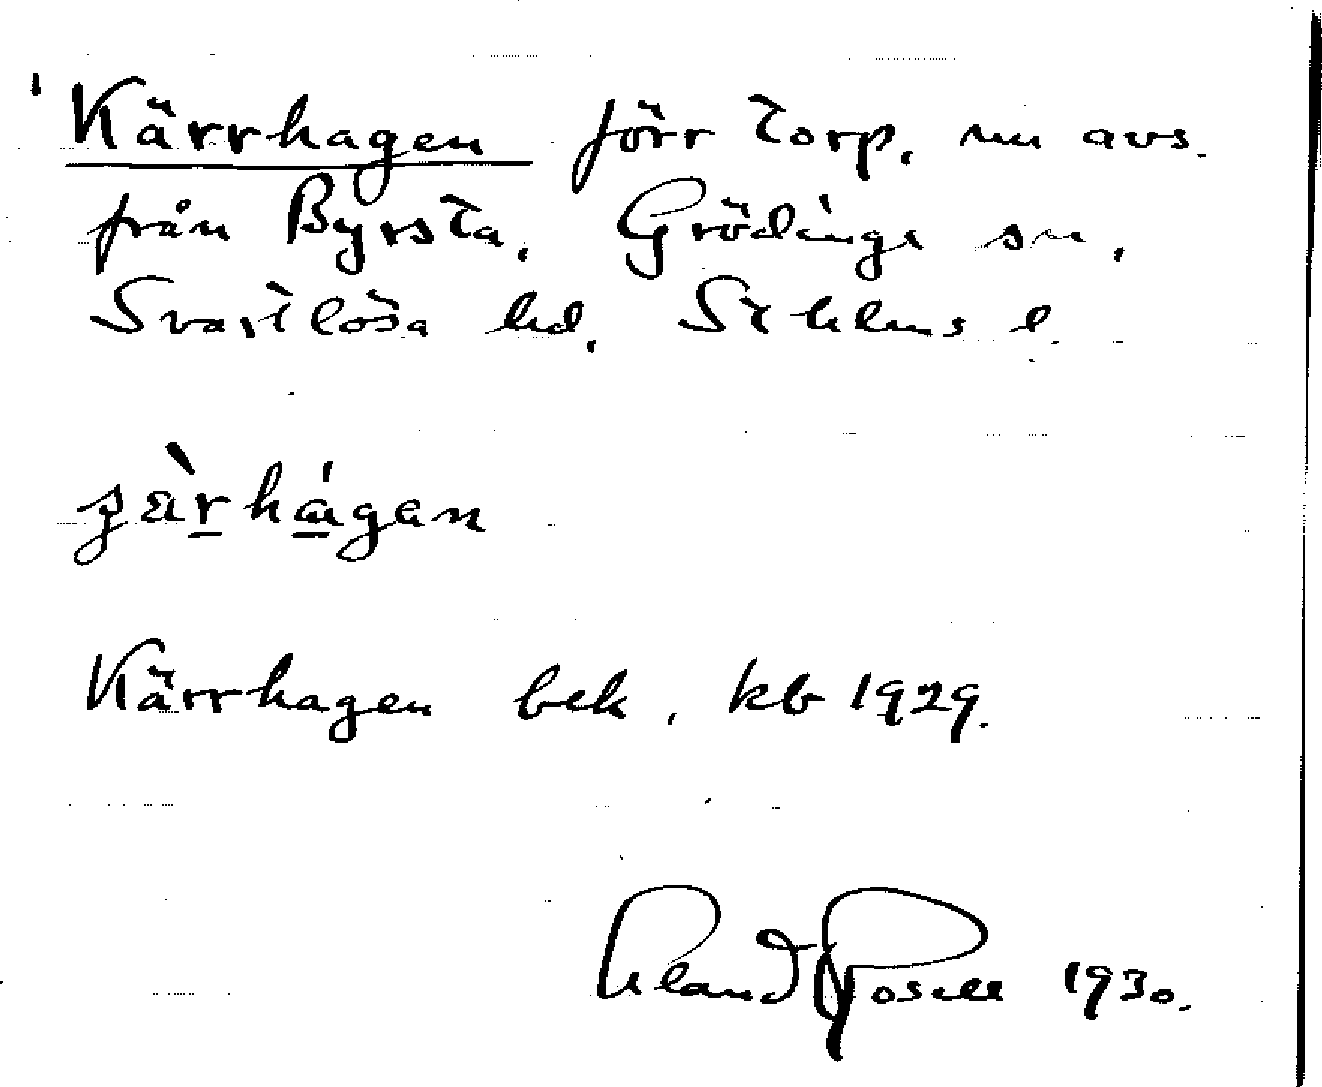 Kärrhagen förr torp, nu avs.
från Byrsta, Grödinge sn,
Svartlösa hd, Sthlms l.
Kärrhagen bek, kb 1929.
1930.